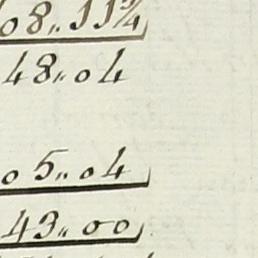 08,,11¾
48,,04
05,,04
43,,00